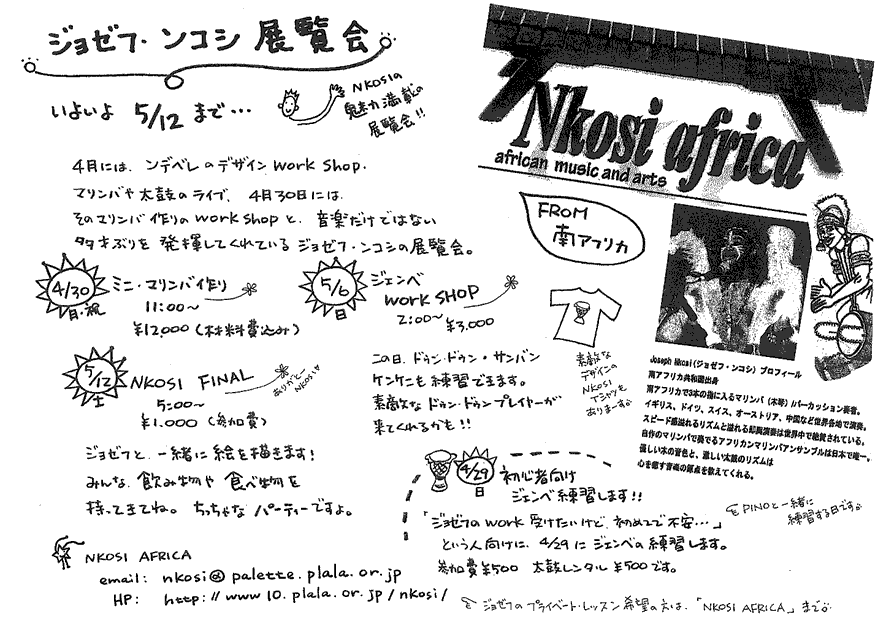 ジョゼフ・ンコシ 展覧会
いよいよ 5/12 まで…
NKOSIの
魅力満載の
展覧会!!
4月には、ンデベレのデザイン work shop.
マリンバや太鼓のライブ、4月30日には
そのマリンバ作りの work shopと、音楽だけではない
多才ぶりを発揮してくれているジョゼフ・ンコシの展覧会。
4/30
月・祝
ミニ・マリンバ作り
11:00〜
¥12,000 (材料費込み)
5/6
日
ジェンベ
work SHOP
2:00〜
¥3,000
この日、ドゥン・ドゥン・サンバン
ケンケニも練習できます。
素敵なドゥン・ドゥンプレイヤーが
来てくれるかも!!
5/12
土
NKOSI FINAL
5:00〜
¥1,000 (参加費)
ありがとー
NKOSI
ジョゼフと、一緒に絵を描きます!
みんな、飲み物や食べ物を
持ってきてね。ちっちゃなパーティーですよ。
NKOSI AFRICA
email: nkosi@palette.plala.or.jp
HP: http://www10.plala.or.jp/nkosi/
Nkosi africa
african music and arts
FROM
南アフリカ
素敵な
デザインの
NKOSI
Tシャツも
ありまーす
Joseph Nkosi(ジョゼフ・ンコシ)プロフィール
南アフリカ共和国出身
南アフリカで3本の指に入るマリンバ(木琴)/パーカッション奏者。
イギリス、ドイツ、スイス、オーストリア、中国など世界各地で演奏。
スピード感溢れるリズムと溢れる即興演奏は世界中で絶賛されている。
自作のマリンバで奏でるアフリカンマリンバアンサンブルは日本で唯一。
優しい木の音色と、激しい太鼓のリズムは
心を癒す音魂の原点を教えてくれる。
4/29
日
初心者向け
ジェンベ練習します!!
「ジョゼフのwork 受けたいけど、初めてで不安…」
という人向けに、4/29にジェンベの練習します。
参加費¥500 太鼓レンタル¥500です。
PINOと一緒に
練習する日です。
ジョゼフのプライベート・レッスン希望の方は、「NKOSI AFRICA」まで。